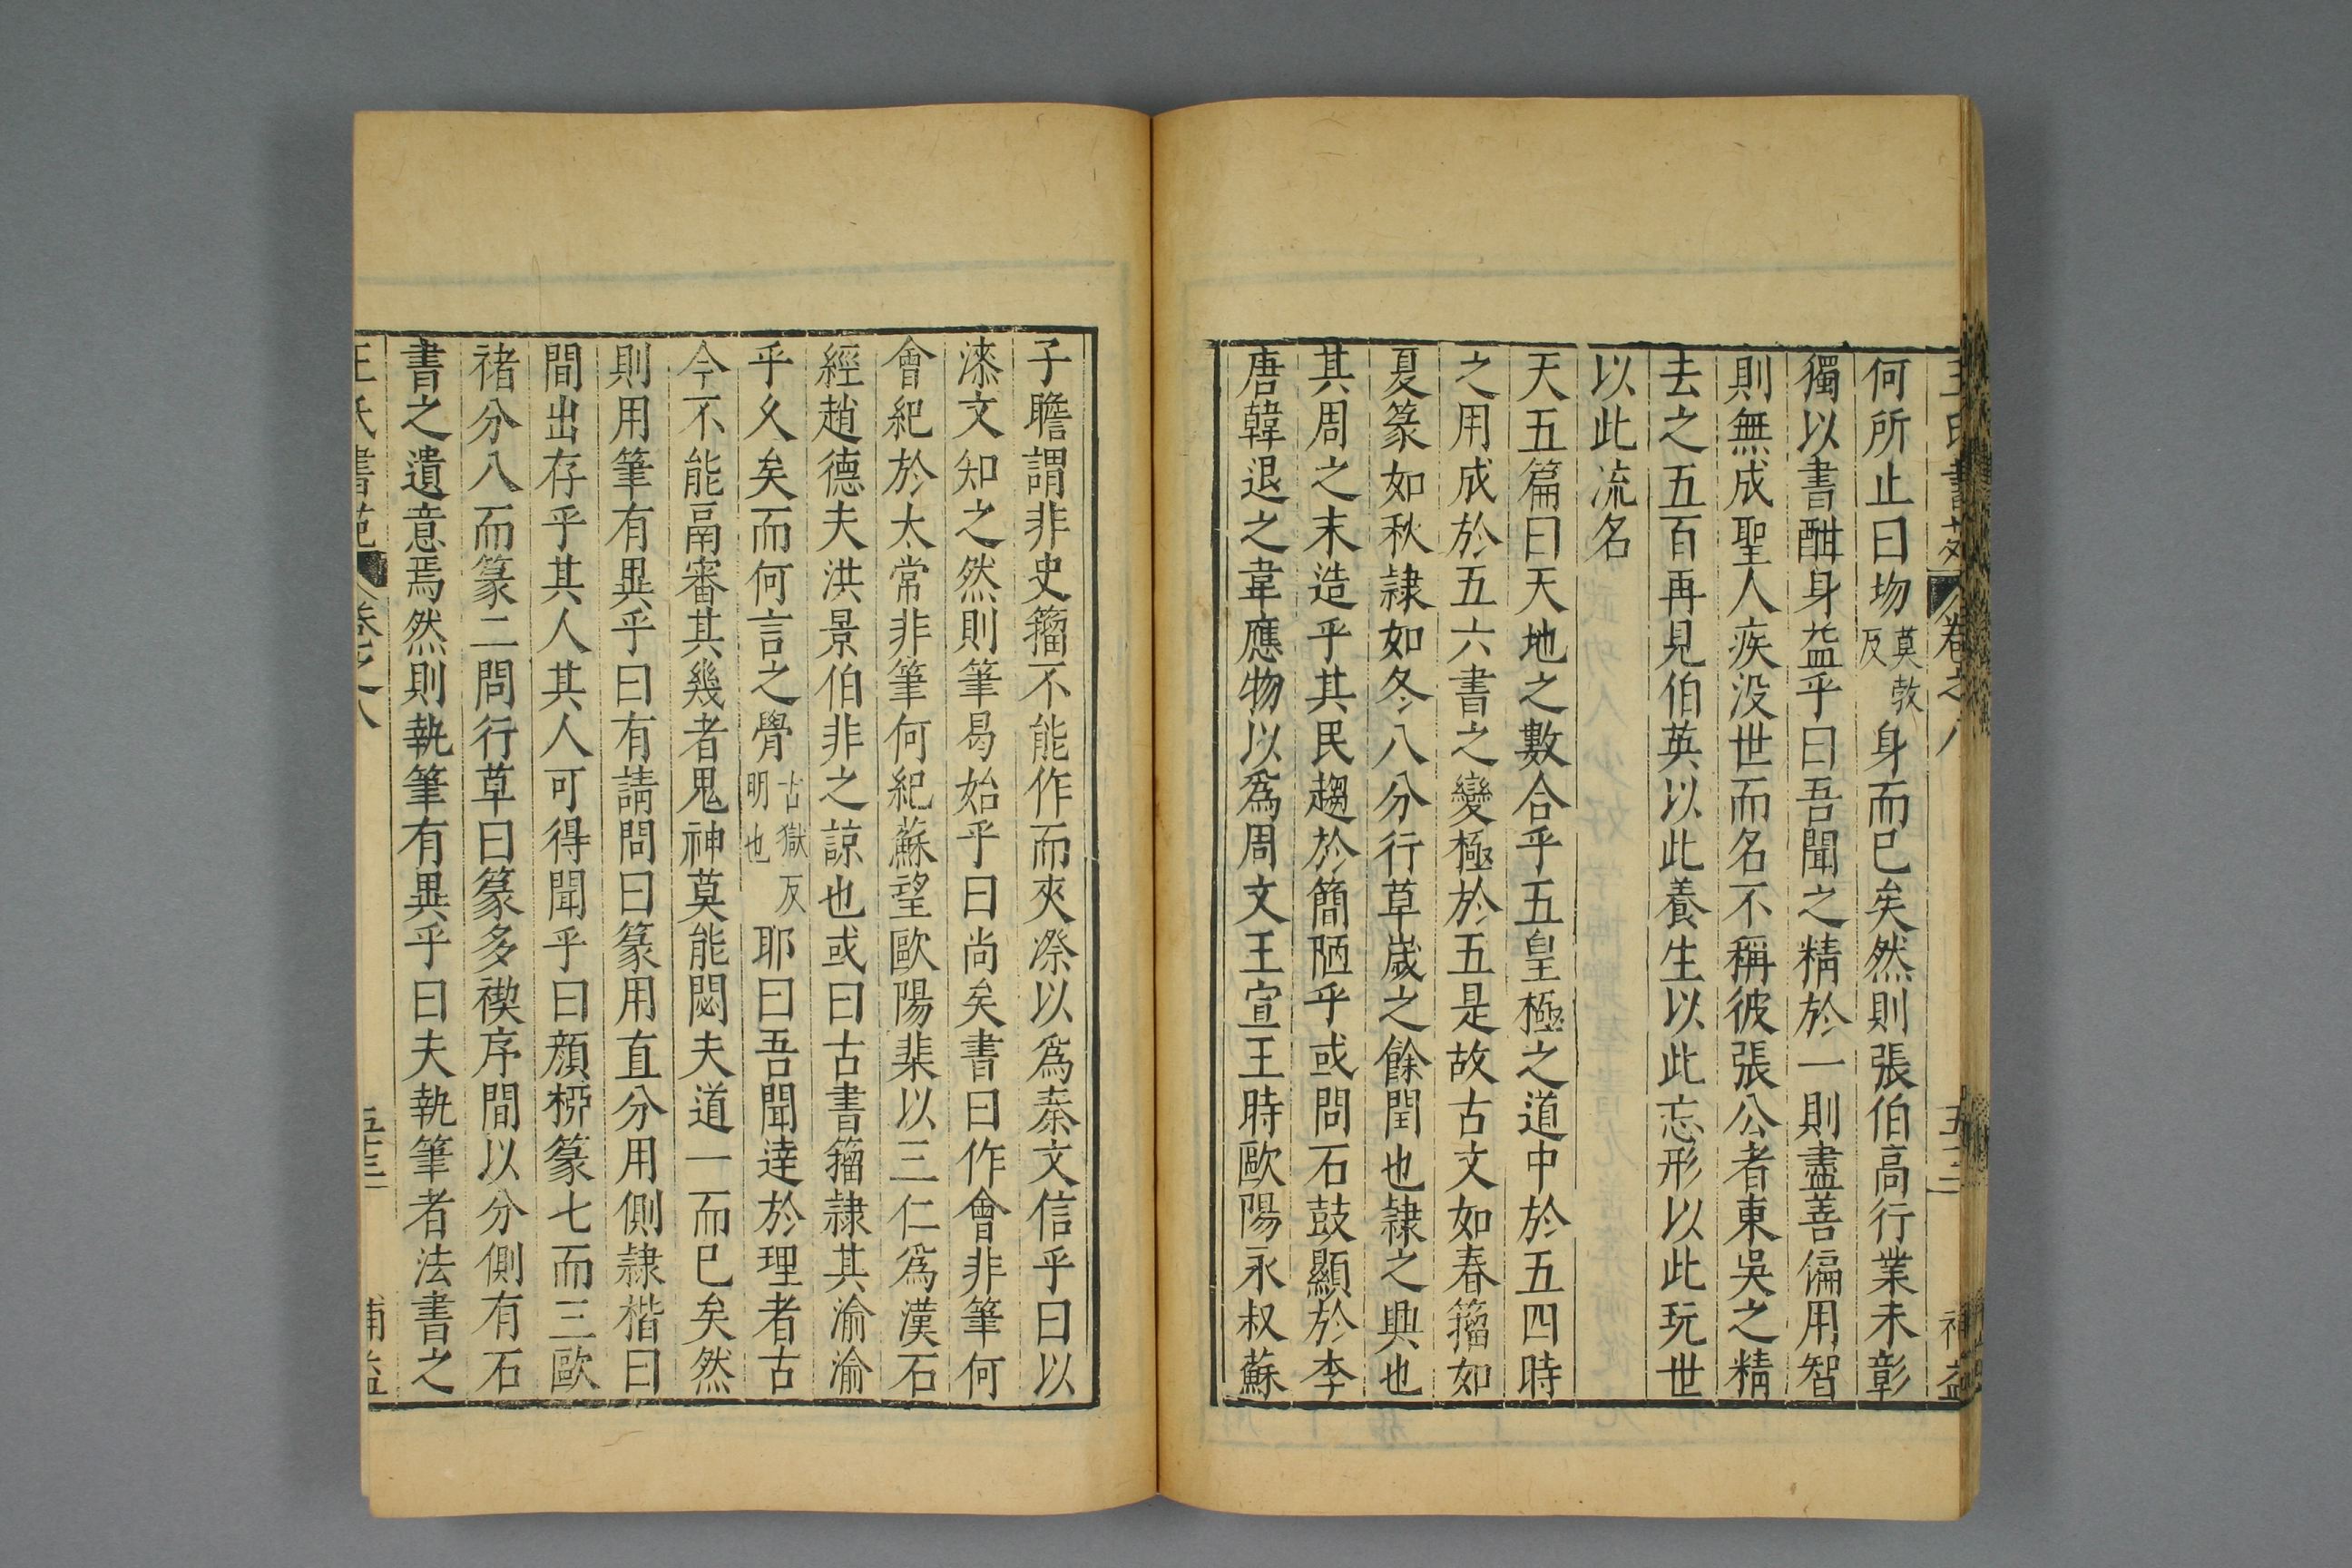 何所止曰坳莫敎反身而已矣然則張伯高行業未彰
獨以書酣身益乎曰吾聞之精於一則盡善偏用智
則無成聖人疾没世而名不稱彼張公者東吳之精
去之五百再見伯英以此養生以此忘形以此玩世
以此流名
天五篇曰天地之數合乎五皇極之道中於五四時
之用成於五六書之變極於五是故古文如春籀如
夏篆如秋隷如冬八分行草歲之餘閏也隷之興也
其周之末造乎其民趨於簡陋乎或問石鼓顯於李
唐韓退之韋應物以爲周文王宣王時歐陽永叔蘇
子瞻謂非史籀不能作而夾漈以爲秦文信乎曰以
漆文知之然則筆曷始乎曰尚矣書曰作會非筆何
會紀於太常非筆何紀蘇望歐陽棐以三仁爲漢石
經趙德夫洪景伯非之諒也或曰古書籀隷其淪淪
乎久矣而何言之覺古獄反明也耶曰吾聞達於理者古
今不能鬲審其幾者鬼神莫能閟夫道一而已矣然
則用筆有異乎曰有請問曰篆用直分用側隷楷曰
間出存乎其人其人可得聞乎曰顔桺篆七而三歐
褚分八而篆二問行草曰篆多禊序間以分側有石
書之遺意焉然則執筆有異乎曰夫執筆者法書之
王氏書苑 卷之八 五十三 補益